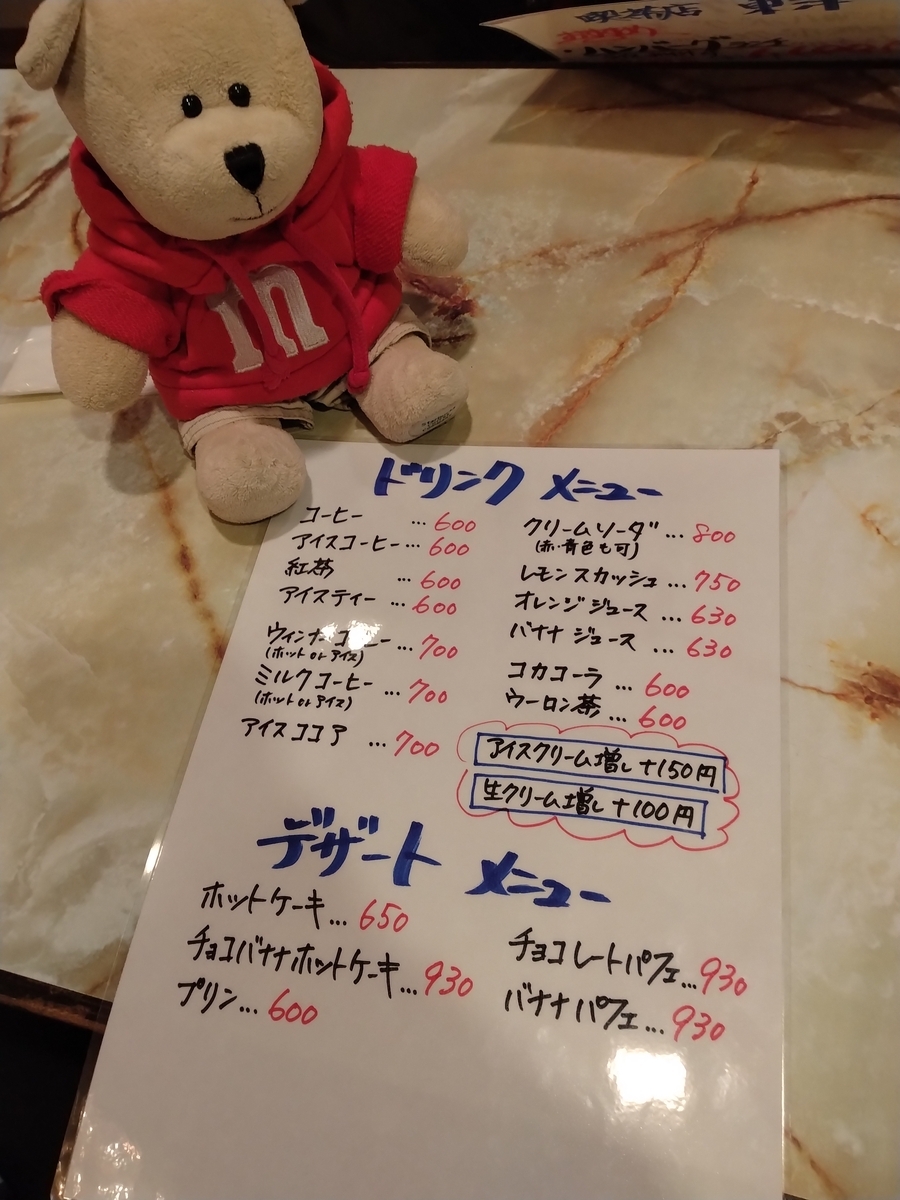 喫茶店
ハンバーグ
10
ドリンク メニュー
コーヒー … 600
アイスコーヒー … 600
紅茶 … 600
アイスティー … 600
ウィンナーコーヒー … 700
(ホット or アイス)
ミルクコーヒー … 700
(ホット or アイス)
アイスココア … 700
クリームソーダ … 800
(赤・青色も可)
レモンスカッシュ … 750
オレンジジュース … 630
バナナジュース … 630
コカコーラ … 600
ウーロン茶 … 600
アイスクリーム増し +150円
生クリーム増し +100円
デザート メニュー
ホットケーキ … 650
チョコバナナホットケーキ … 930
プリン … 600
チョコレートパフェ … 930
バナナパフェ … 930